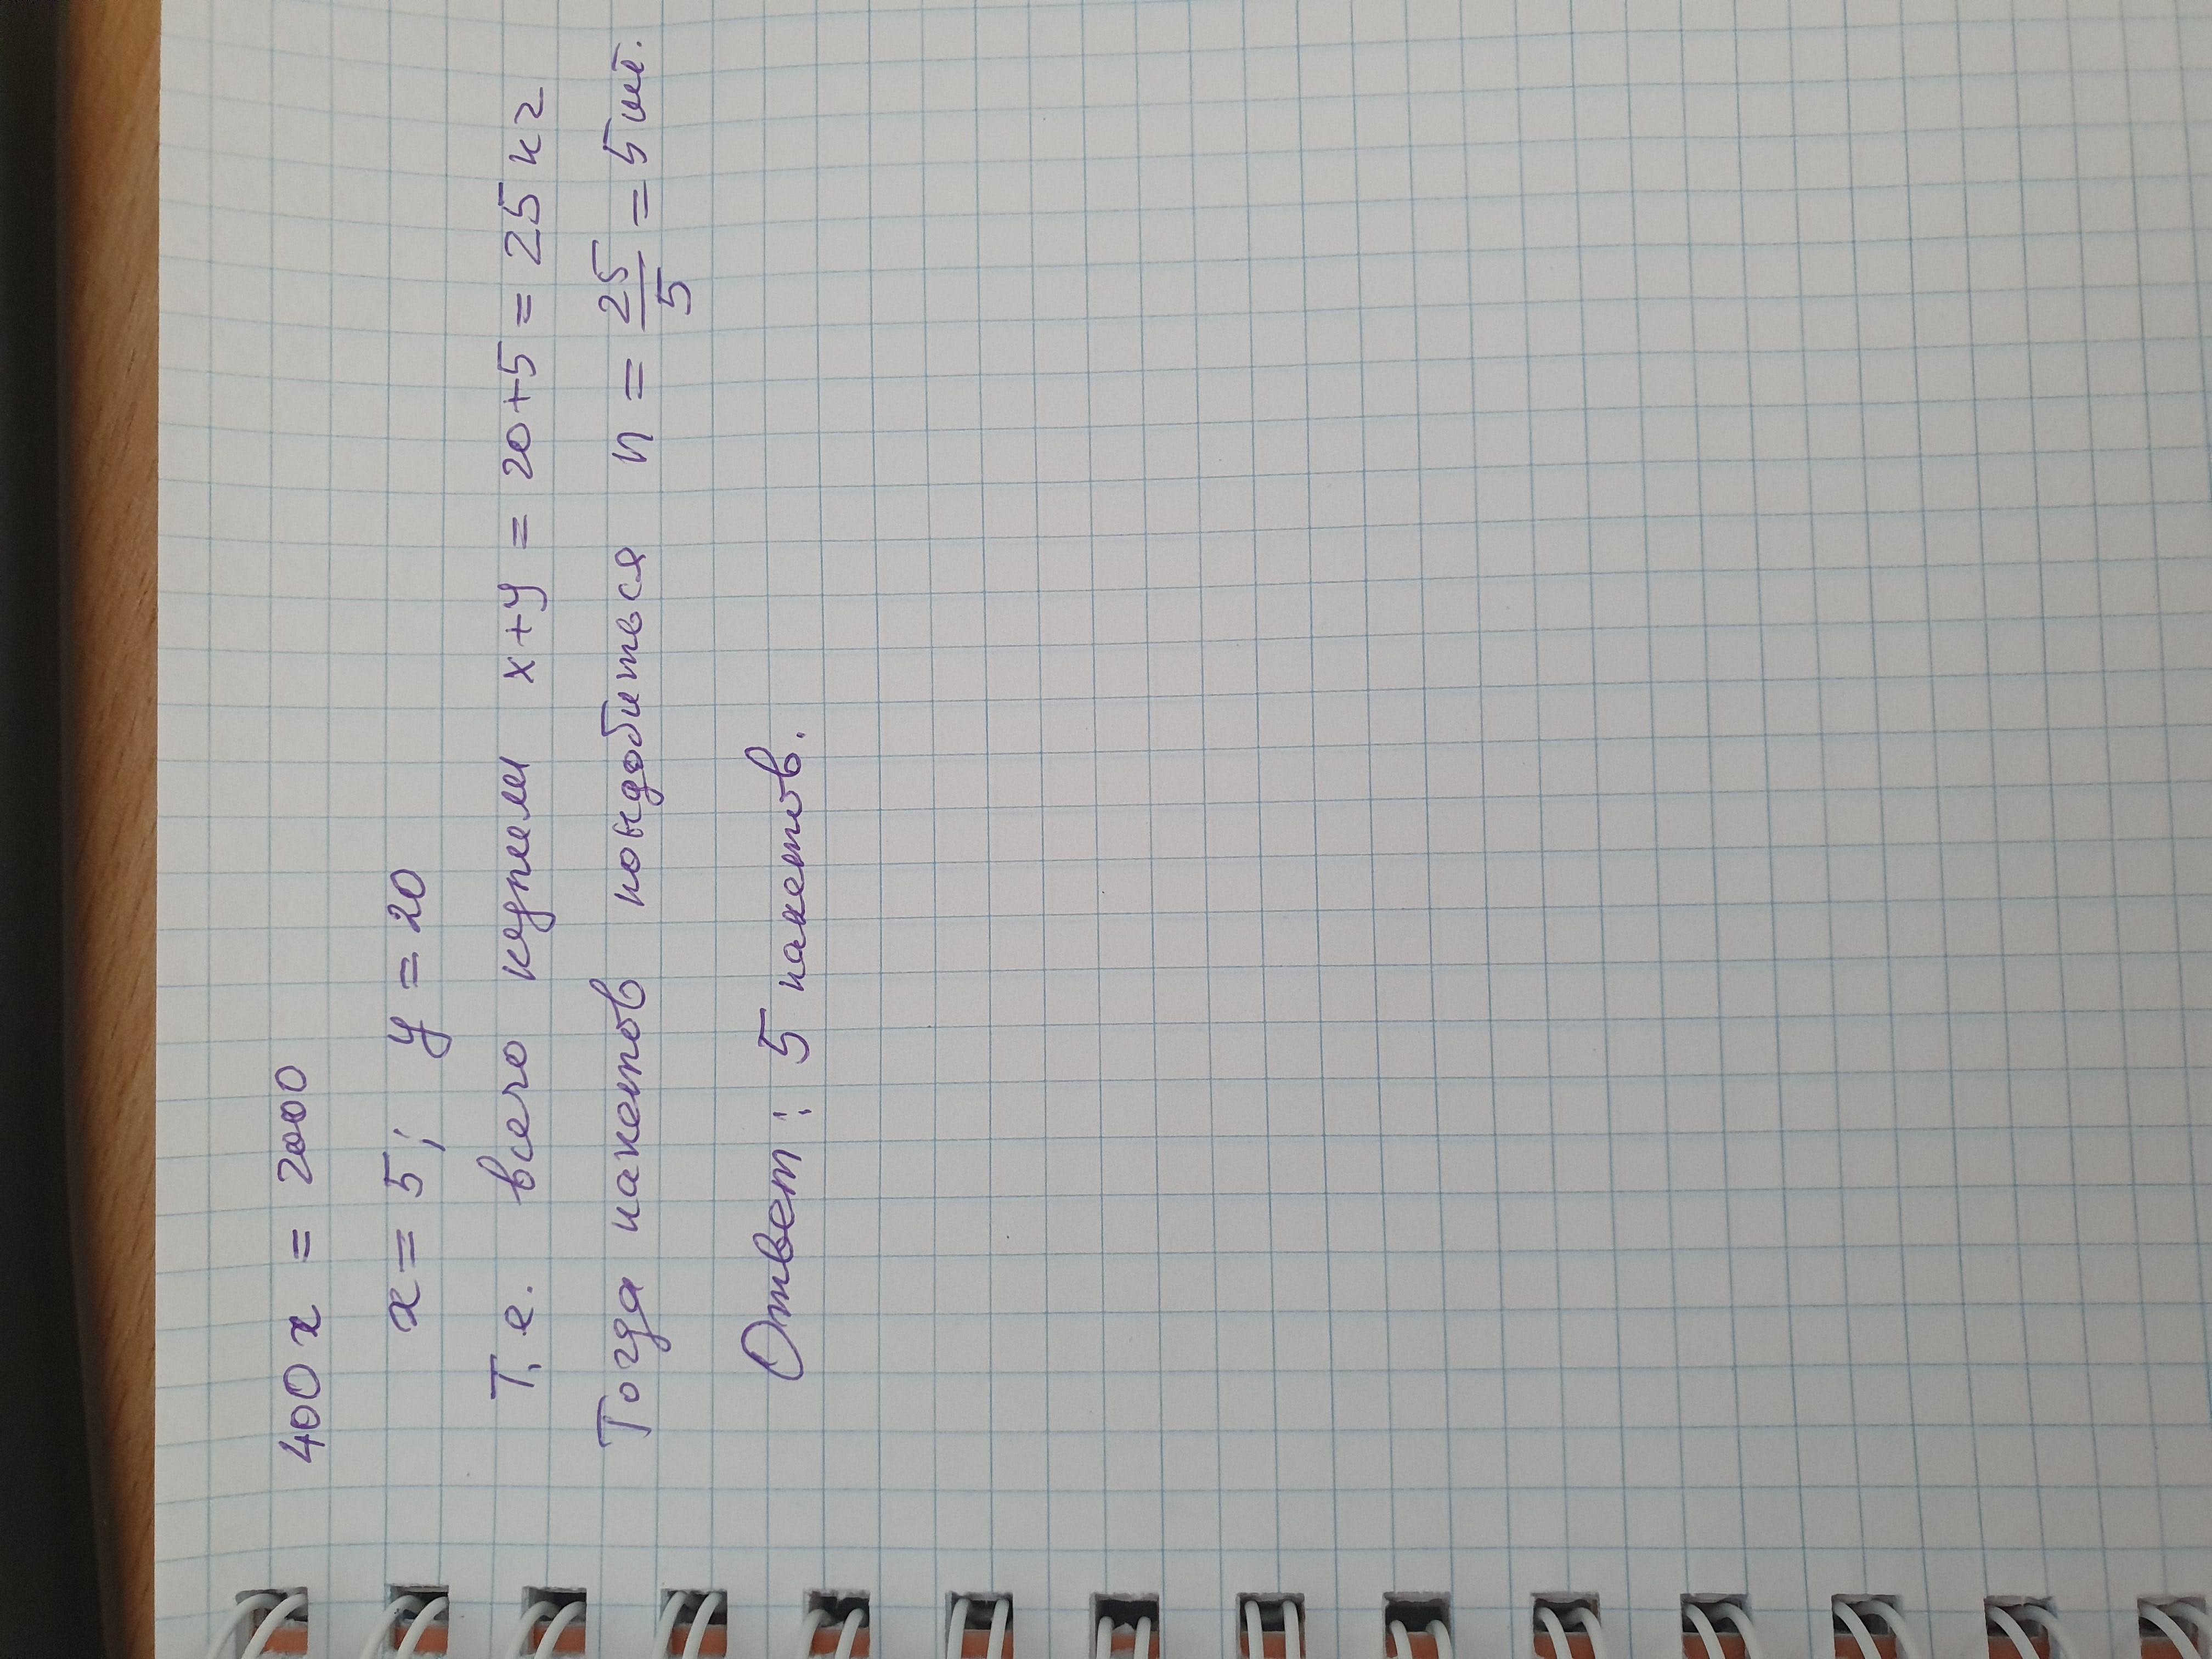 400x = 2000
x = 5; y = 20
Т.е. всего купили x+y = 20+5 = 25 кг
Тогда пакетов понадобиться n = 25/5 = 5 шт.
Ответ: 5 пакетов.